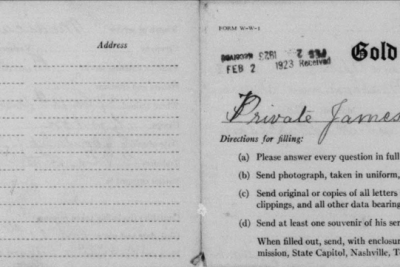 Address
FORM W-W-1
FEB 2 1923 Received
Gold
Private James
Directions for filling:
(a) Please answer every question in full
(b) Send photograph, taken in uniform,
(c) Send original or copies of all letters
clippings, and all other data bearing
(d) Send at least one souvenir of his ser
When filled out, send, with enclosur
mission, State Capitol, Nashville, T